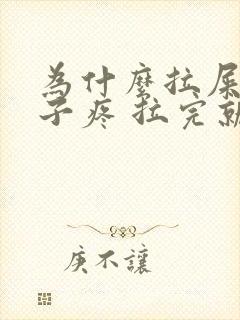 為什麼拉屎
子疼 拉完就
庚不讓